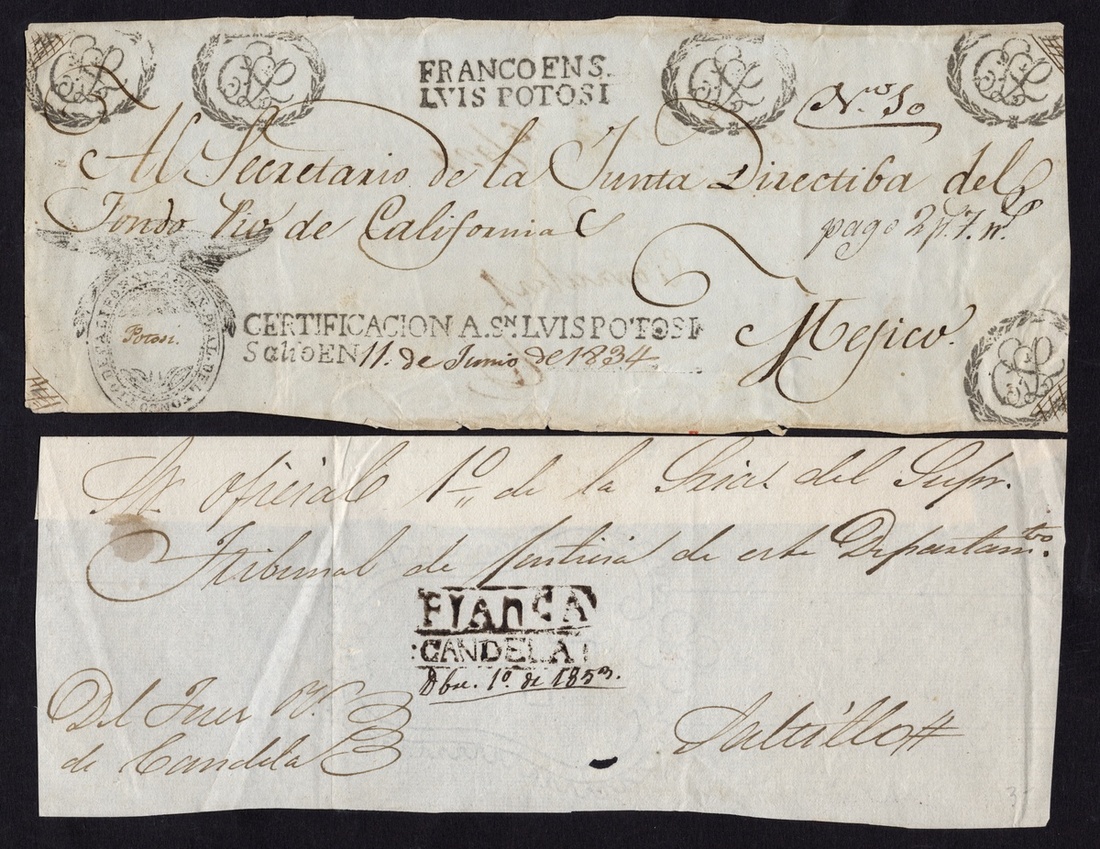 FRANCO EN S.
LVIS POTOSI
Nº 10
Al Secretario de la Junta Directiba del
Fondo Pio de California
pago 2 p. 7. rs.
Mejico.
Potosi.
CERTIFICACION A Sⁿ. LVIS POTOSI
Salio EN 11. de Junio de 1834.
Al oficial 1º de la Sria. del Supr.
Tribunal de Justicia de este Departamto.
FIANCA
CANDELA
Dbre. 1º. de 1853.
Del Juez
de Candela
Saltillo